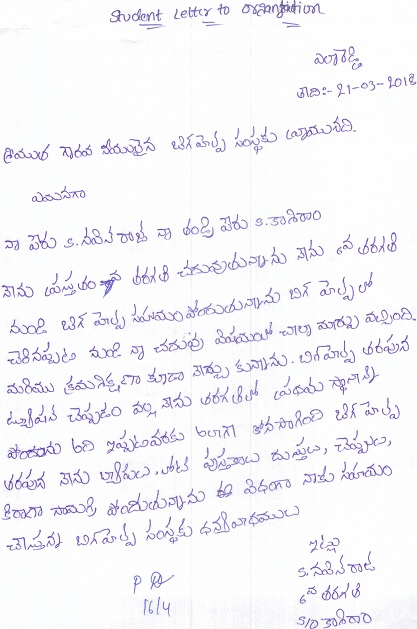 Student Letter to organisation
ఎల్లారెడ్డి
తాది:- 21-03-2018
శ్రీయుత గౌరవ నీయులైన బిగ్ హెల్ప్ సంస్థకు వ్రాయునది.
ఏమనగా
నా పేరు S. నవీన్ రాజ్ నా తండ్రి పేరు S. కాశీరాం
నేను ప్రస్తుతం తరగతి చదువుతున్నాను నేను 6వ తరగతి
నుండి బిగ్ హెల్ప్ సహాయం పొందుతున్నాను బిగ్ హెల్ప్ లో
చేరినప్పటి నుండి నా చదువు విషయంలో చాలా మార్పు వచ్చింది.
మరియు క్రమశిక్షణ కూడా నేర్చు కున్నాను. బిగ్ హెల్ప్ తరపున
ట్యూషన్ చెప్పడం వల్ల నేను తరగతిలో ప్రథమ స్థానాన్ని
పొందాను అది ఇప్పటివరకు అలాగే కొనసాగింది బిగ్ హెల్ప్
తరపున నేను నోట్ పుస్తకాలు దుస్తులు, చెప్పులు,
కిరాణా సామగ్రి పొందుతున్నాను ఈ విధంగా నాకు సహాయం
చేస్తున్న బిగ్ హెల్ప్ సంస్థకు ధన్యవాదములు
ఇట్లు
S. నవీన్ రాజ్
6వ తరగతి
S/o కాశీరాం
16/4